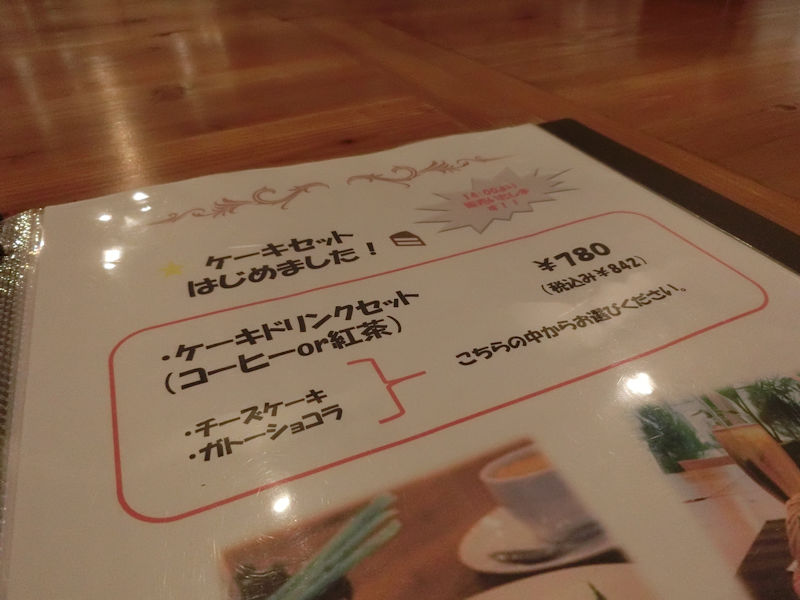 14:00より
ケーキセット
はじめました！
・ケーキドリンクセット
(コーヒーor紅茶)
￥780
(税込み￥842)
・チーズケーキ
・ガトーショコラ
こちらの中からお選びください。